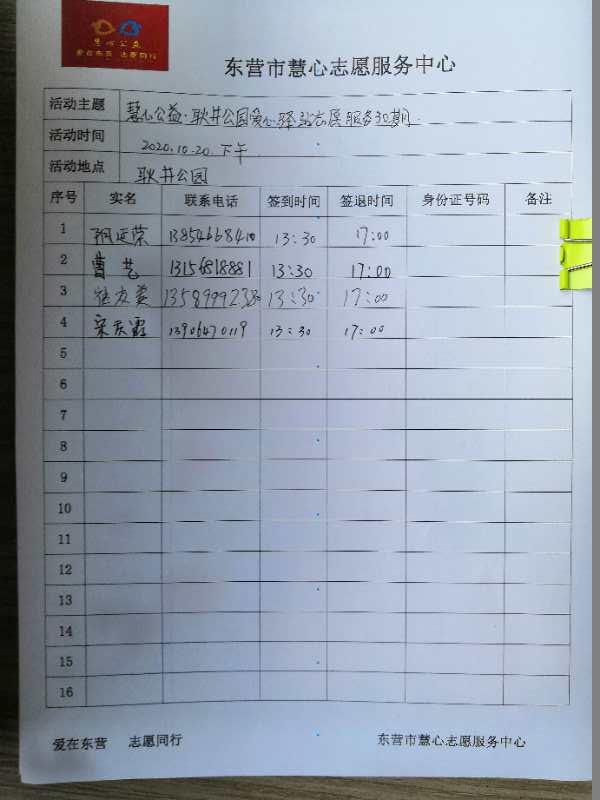 慧心公益
爱在东营 志愿同行
东营市慧心志愿服务中心
活动主题 慧心公益·耿井公园爱心驿站志愿服务30期.
活动时间 2020.10.20.下午
活动地点 耿井公园
序号 实名 联系电话 签到时间 签退时间 身份证号码 备注
1 13854668410 13:30 17:00
2 曹艺 13156818881 13:30 17:00
3 13:30 17:00
4 宋庆霞 13906470119 13:30 17:00
5
6
7
8
9
10
11
12
13
14
15
16
爱在东营 志愿同行 东营市慧心志愿服务中心